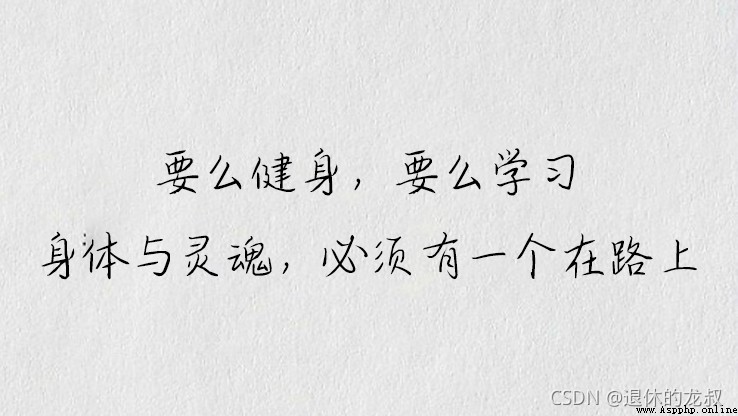 要么健身，要么学习
身体与灵魂，必须有一个在路上
CSDN @退休的龙叔
www.Aspphp.online